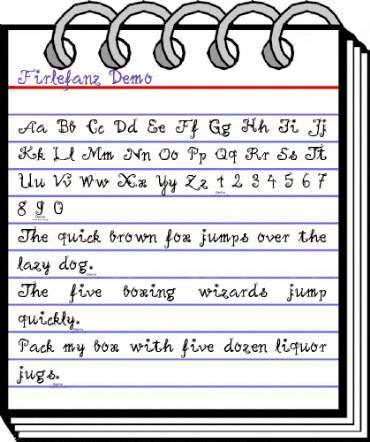 Firlefanz Demo
Aa Bb Cc Dd Ee Ff Gg Hh Ii Jj
Kk Ll Mm Nn Oo Pp Qq Rr Ss Tt
Uu Vv Ww Xx Yy Zz 1 2 3 4 5 6 7
8 9 0
The quick brown fox jumps over the
lazy dog.
The five boxing wizards jump
quickly.
Pack my box with five dozen liquor
jugs.